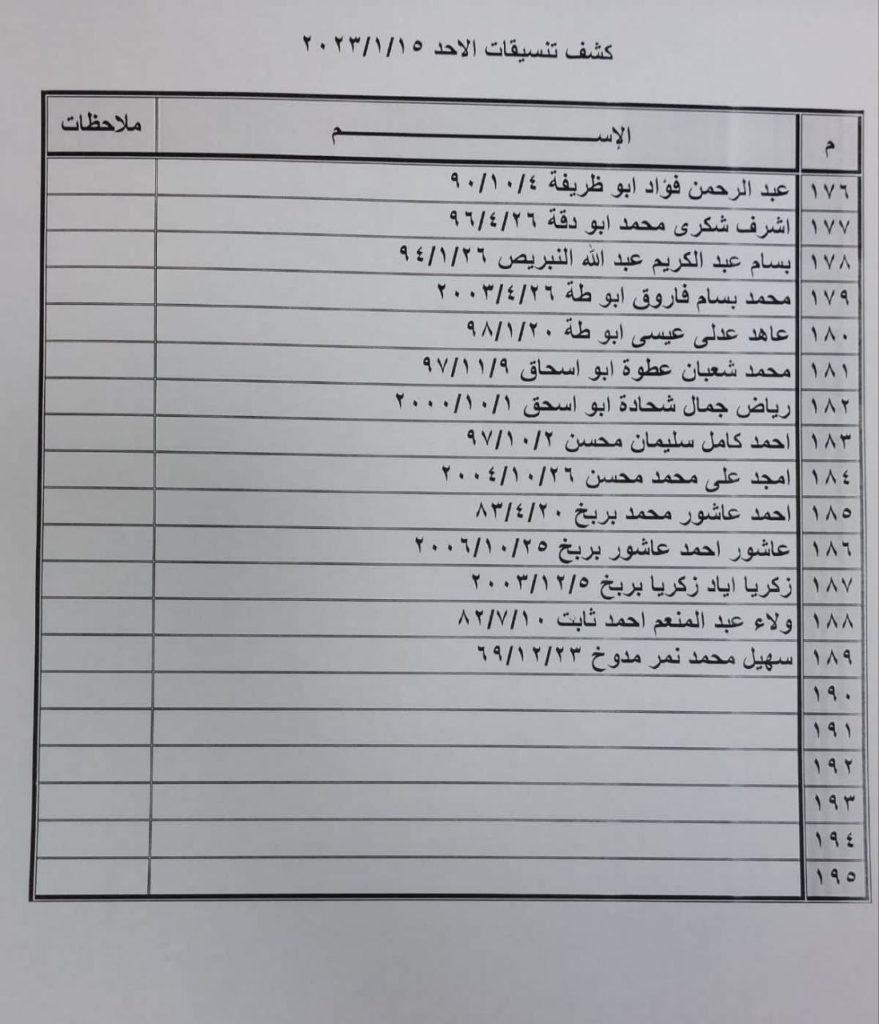 كشف تنسيقات الاحد ٢٠٢٣/١/١٥
م الإســـــــــــــــــــــــــــــم ملاحظات
١٧٦ عبد الرحمن فؤاد ابو ظريفة ٩٠/١٠/٤
١٧٧ اشرف شكرى محمد ابو دقة ٩٦/٤/٢٦
١٧٨ بسام عبد الكريم عبد الله النبريص ٩٤/١/٢٦
١٧٩ محمد بسام فاروق ابو طة ٢٠٠٣/٤/٢٦
١٨٠ عاهد عدلى عيسى ابو طة ٩٨/١/٢٠
١٨١ محمد شعبان عطوة ابو اسحاق ٩٧/١١/٩
١٨٢ رياض جمال شحادة ابو اسحق ٢٠٠٠/١٠/١
١٨٣ احمد كامل سليمان محسن ٩٧/١٠/٢
١٨٤ امجد على محمد محسن ٢٠٠٤/١٠/٢٦
١٨٥ احمد عاشور محمد بربخ ٨٣/٤/٢٠
١٨٦ عاشور احمد عاشور بربخ ٢٠٠٦/١٠/٢٥
١٨٧ زكريا اياد زكريا بربخ ٢٠٠٣/١٢/٥
١٨٨ ولاء عبد المنعم احمد ثابت ٨٢/٧/١٠
١٨٩ سهيل محمد نمر مدوخ ٦٩/١٢/٢٣
١٩٠
١٩١
١٩٢
١٩٣
١٩٤
١٩٥